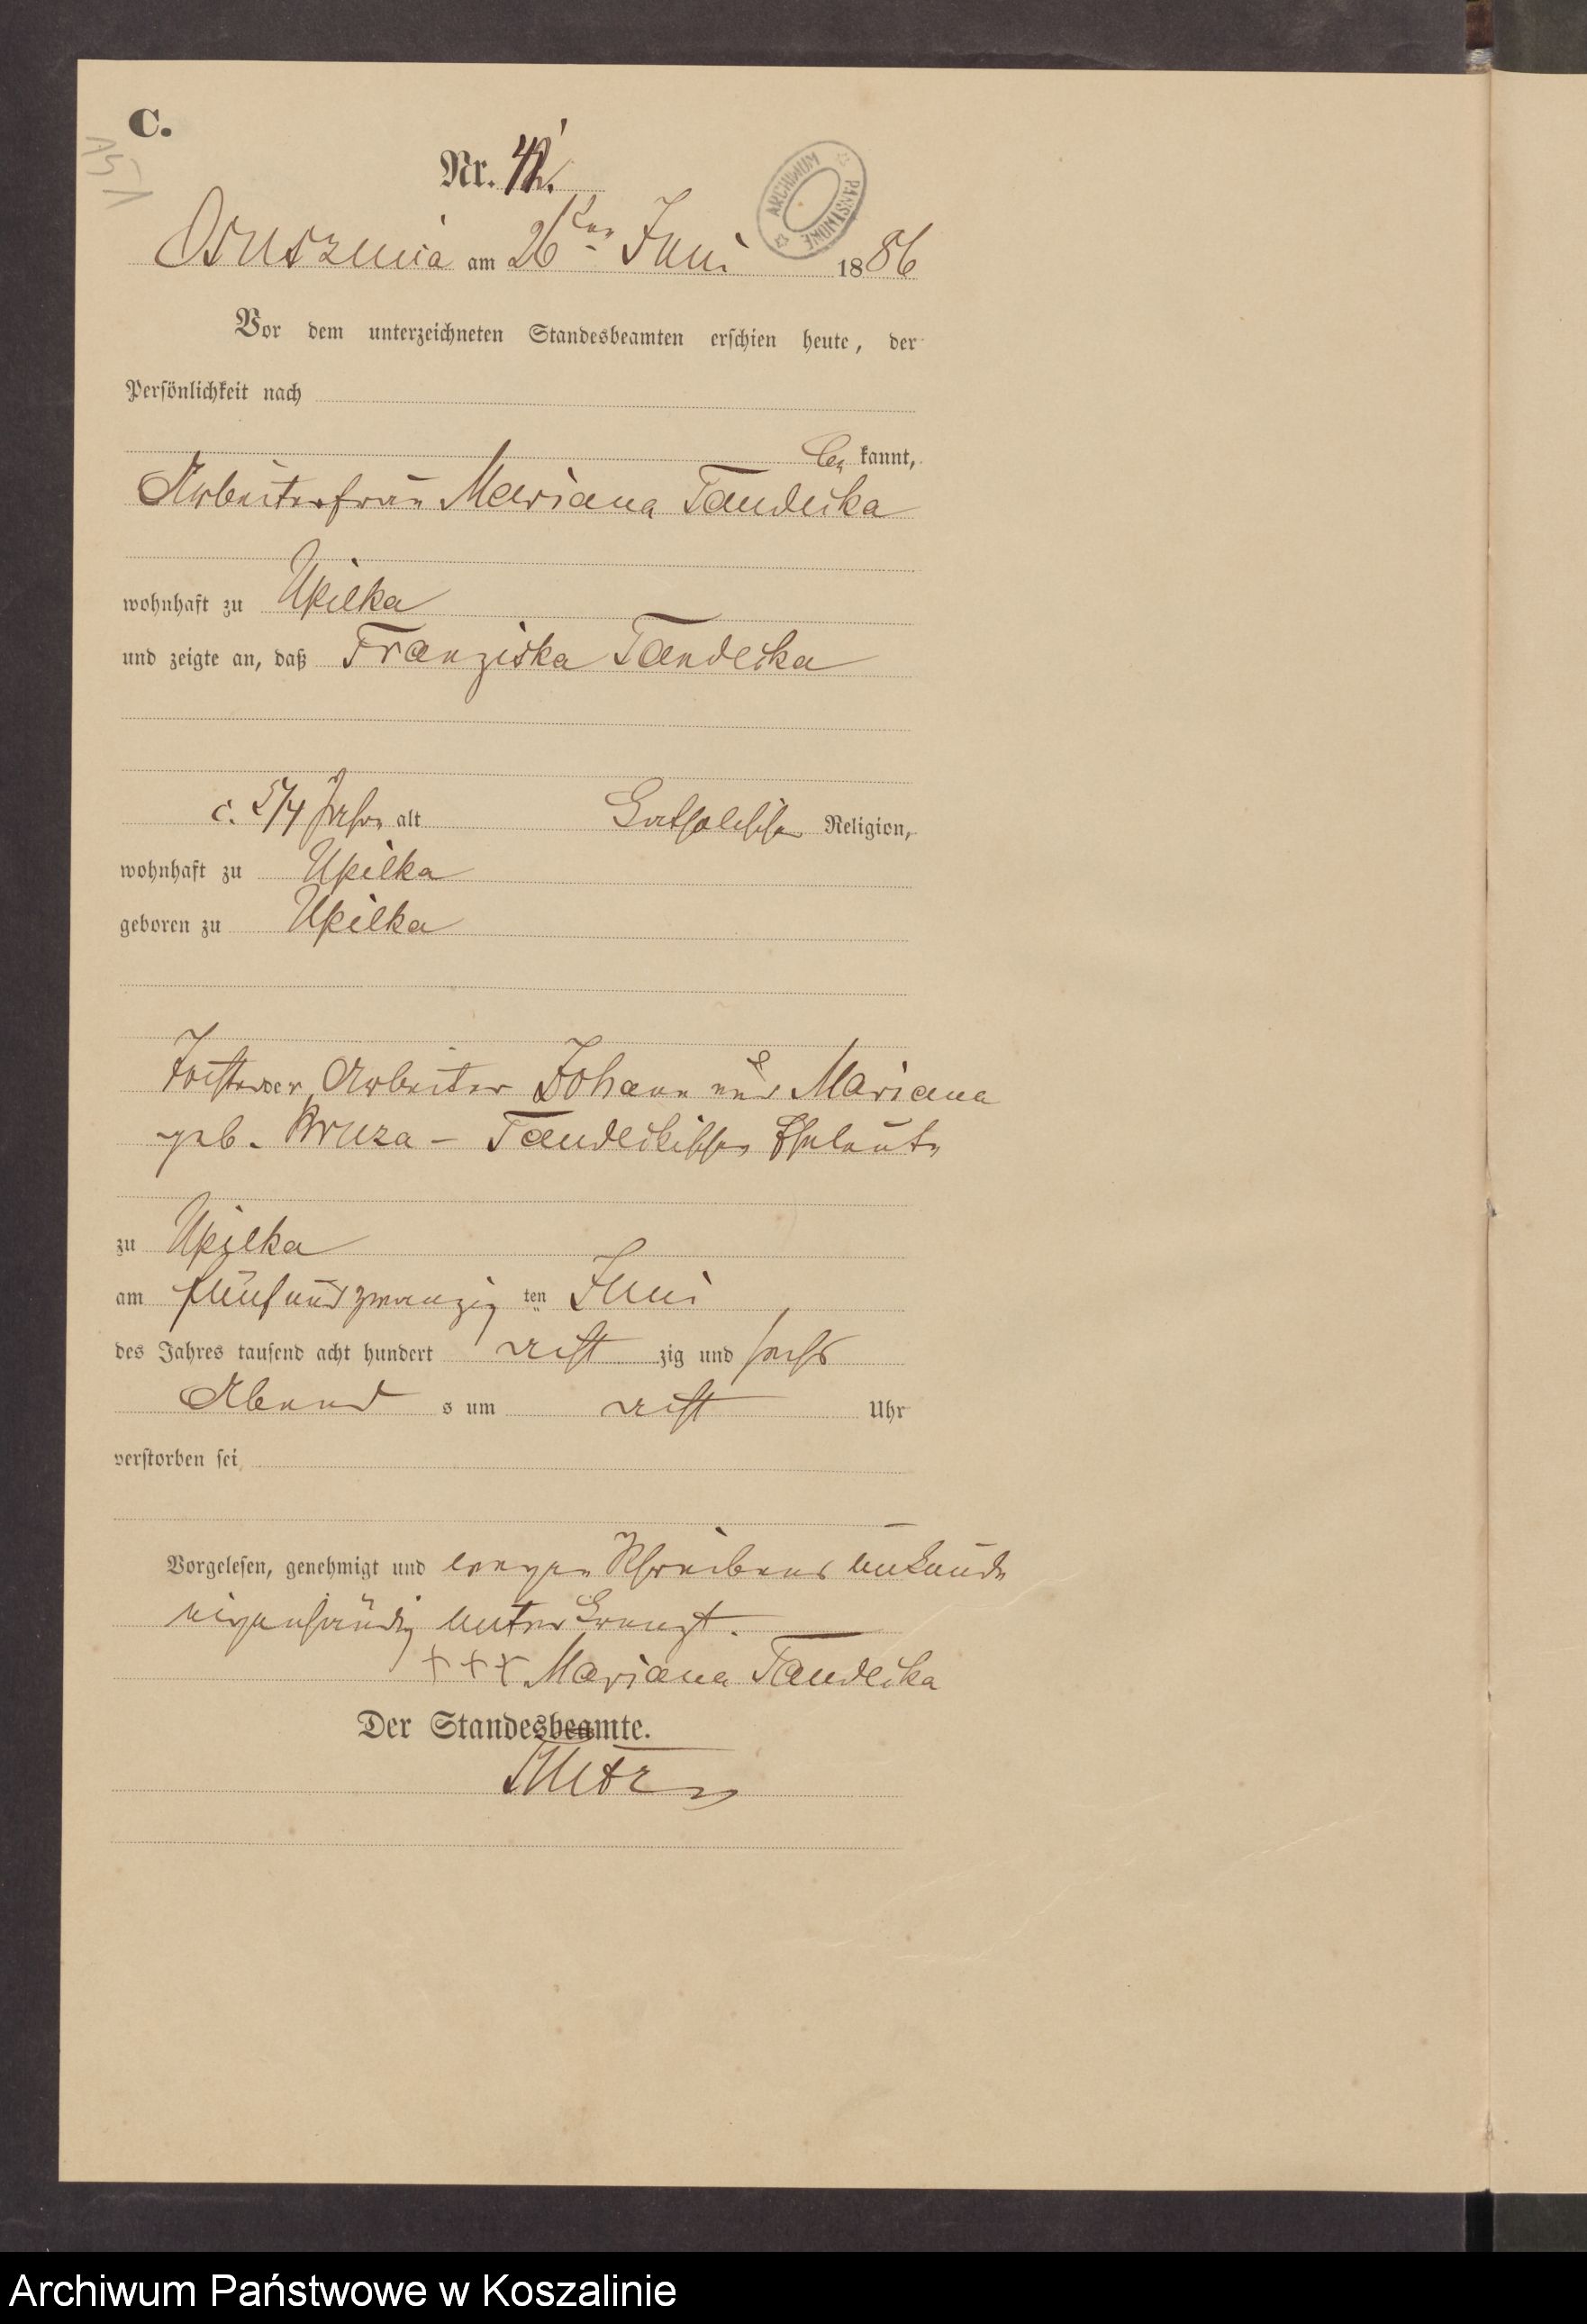 C.
Nr. 42.
Osusznica am 26ten Juni 1886
Vor dem unterzeichneten Standesbeamten erschien heute, der
Persönlichkeit nach
be kannt,
Arbeiterfrau Mariana Tandecka
wohnhaft zu Upilka
und zeigte an, daß Franziska Tandecka
c. 5/4 Jahre alt katholischer Religion,
wohnhaft zu Upilka
geboren zu Upilka
Tochter der Arbeiter Johann und Mariana
geb. Bruza - Tandeckischen Eheleute
zu Upilka
am fünfundzwanzig ten Juni
des Jahres tausend acht hundert acht zig und sechs
Abend s um acht Uhr
verstorben sei
Vorgelesen, genehmigt und wegen Schreibens unkunde
eigenhändig unterkreuzt.
+++ Mariana Tandecka
Der Standesbeamte.
ARCHIWUM PAŃSTWOWE
Archiwum Państwowe w Koszalinie